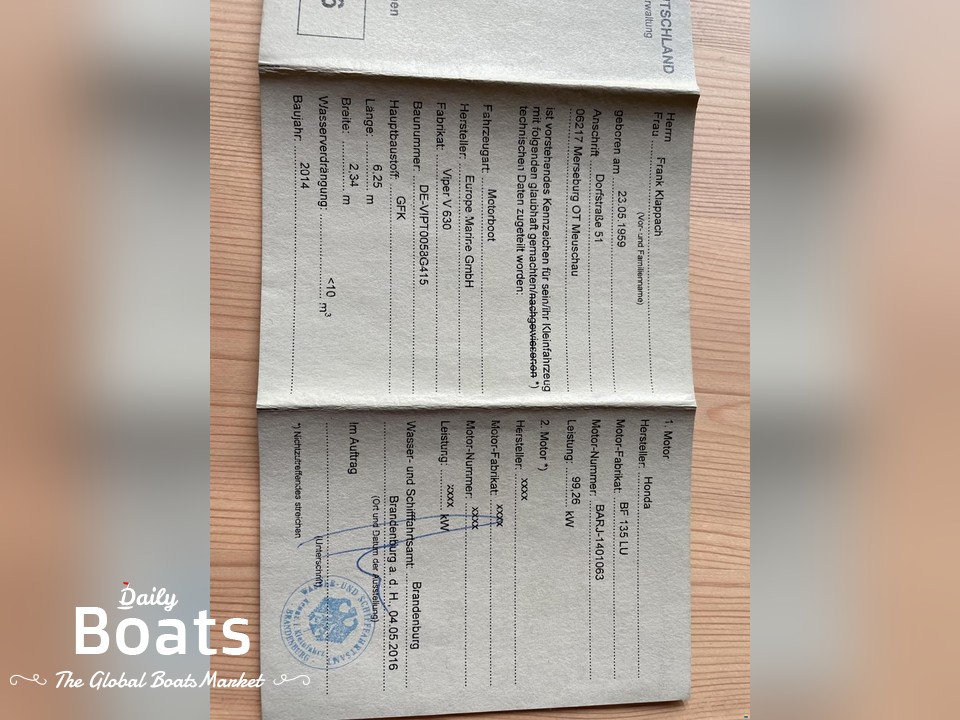 TSCHLAND
rwaltung
en
6
Herrn
Frau Frank Klappach
(Vor- und Familienname)
geboren am 23.05.1959
Anschrift Dorfstraße 51
06217 Merseburg OT Meuschau
ist vorstehendes Kennzeichen für sein/ihr Kleinfahrzeug
mit folgenden glaubhaft gemachten/nachgewiesenen *)
technischen Daten zugeteilt worden:
Fahrzeugart: Motorboot
Hersteller: Europe Marine GmbH
Fabrikat: Viper V 630
Baunummer: DE-VIPT0058G415
Hauptbaustoff: GFK
Länge: 6,25 m
Breite: 2,34 m
Wasserverdrängung: <10 m³
Baujahr: 2014
1. Motor
Hersteller: Honda
Motor-Fabrikat: BF 135 LU
Motor-Nummer: BARJ-1401063
Leistung: 99,26 kW
2. Motor *)
Hersteller: xxxx
Motor-Fabrikat: xxxx
Motor-Nummer: xxxx
Leistung: xxxx kW
Wasser- und Schifffahrtsamt: Brandenburg
Brandenburg a. d. H., 04.05.2016
(Ort und Datum der Ausstellung)
Im Auftrag
(Unterschrift)
*) Nichtzutreffendes streichen
WASSER- UND SCHIFFFAHRTSAMT
BRANDENBURG
Daily
Boats
The Global Boats Market